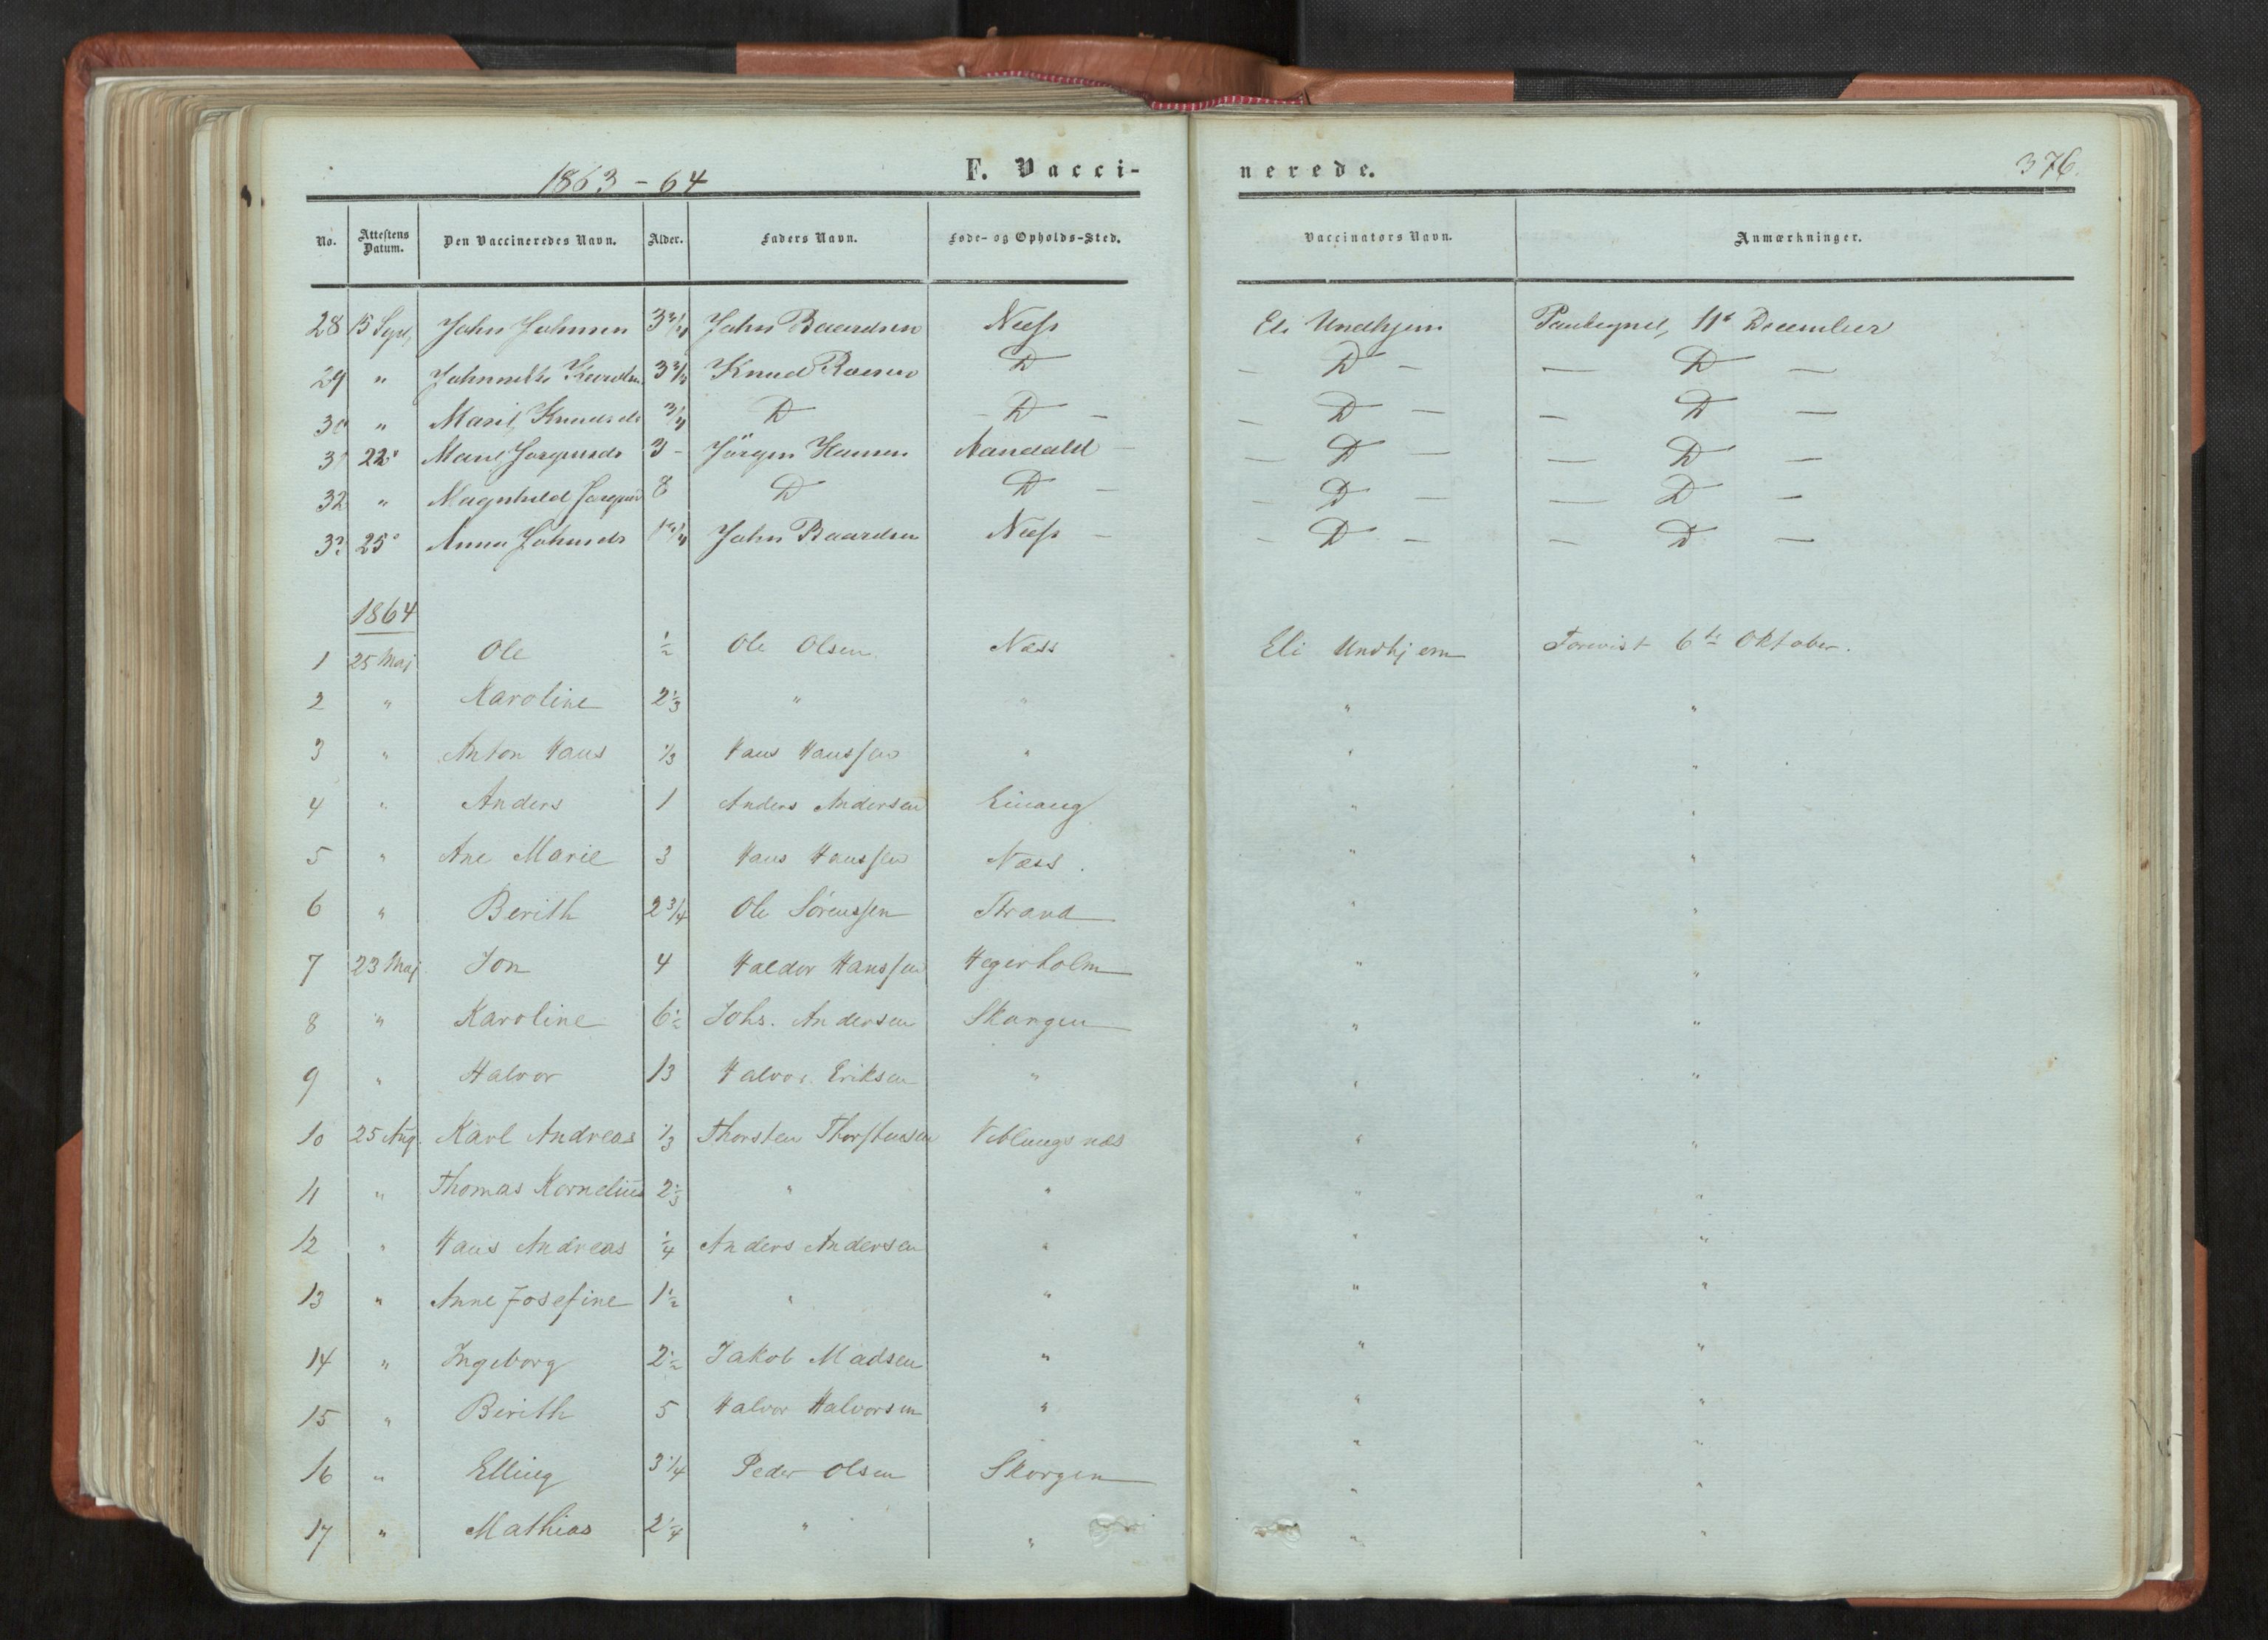 1863 - 64 F. Vacci- nerede. 376.
No. Attestens Datum. Den Vaccineredes Navn. Alder. Faders Navn. Føde- og Opholds-Sted. Vaccinators Navn. Anmærkninger.
28 15 Sept, John Johnsen 3 3/4 John Baardsen Næss Eli Undhjem 11e December
29 " 3 3/4 Knud D - D - - D -
30 " Marit Knudsdr 3/4 D - D - - D - - D -
31 22e Marit Jørgensdr 3 - Jörgen Hansen Aandahl - - D - - D -
32 " Magnhild 8 D D - - D - - D -
33 25e Anna Johnsdr 1 3/4 John Baardsen Næss - - D - - D -
1864
1 25 Maj Ole 1/2 Ole Olsen Næss Eli Undhjem Forevist 6te Oktober.
2 " Karoline 2 1/3 " " " "
3 " Anton Hans 1/3 Hans Hanssen " " "
4 " Anders 1 Anders Andersen Einang " "
5 " Ane Marie 3 Hans Hanssen Næss. " "
6 " Berith 2 3/4 Ole Sörenssen Strand " "
7 23 Maj Jon 4 Haldor Hanssen Hegerholm " "
8 " Karoline 6 1/2 Johs. Andersen Skorgen " "
9 " Halvor 13 Halvor Eriksen " " "
10 25 Aug. Karl Andreas 1/3 Thorsten Thorstensen Veblungsnæs " "
11 " Thomas Kornelius 2 1/3 " " " "
12 " Hans Andreas 1/4 Anders Andersen " " "
13 " Anne Josefine 1 1/2 " " " "
14 " Ingeborg 2 1/2 Jakob Madsen " " "
15 " Berith 5 Halvor Halvorsen " " "
16 " Elling 3 1/4 Peder Olsen Skorgen " "
17 " Mathias 2 1/4 " " " "